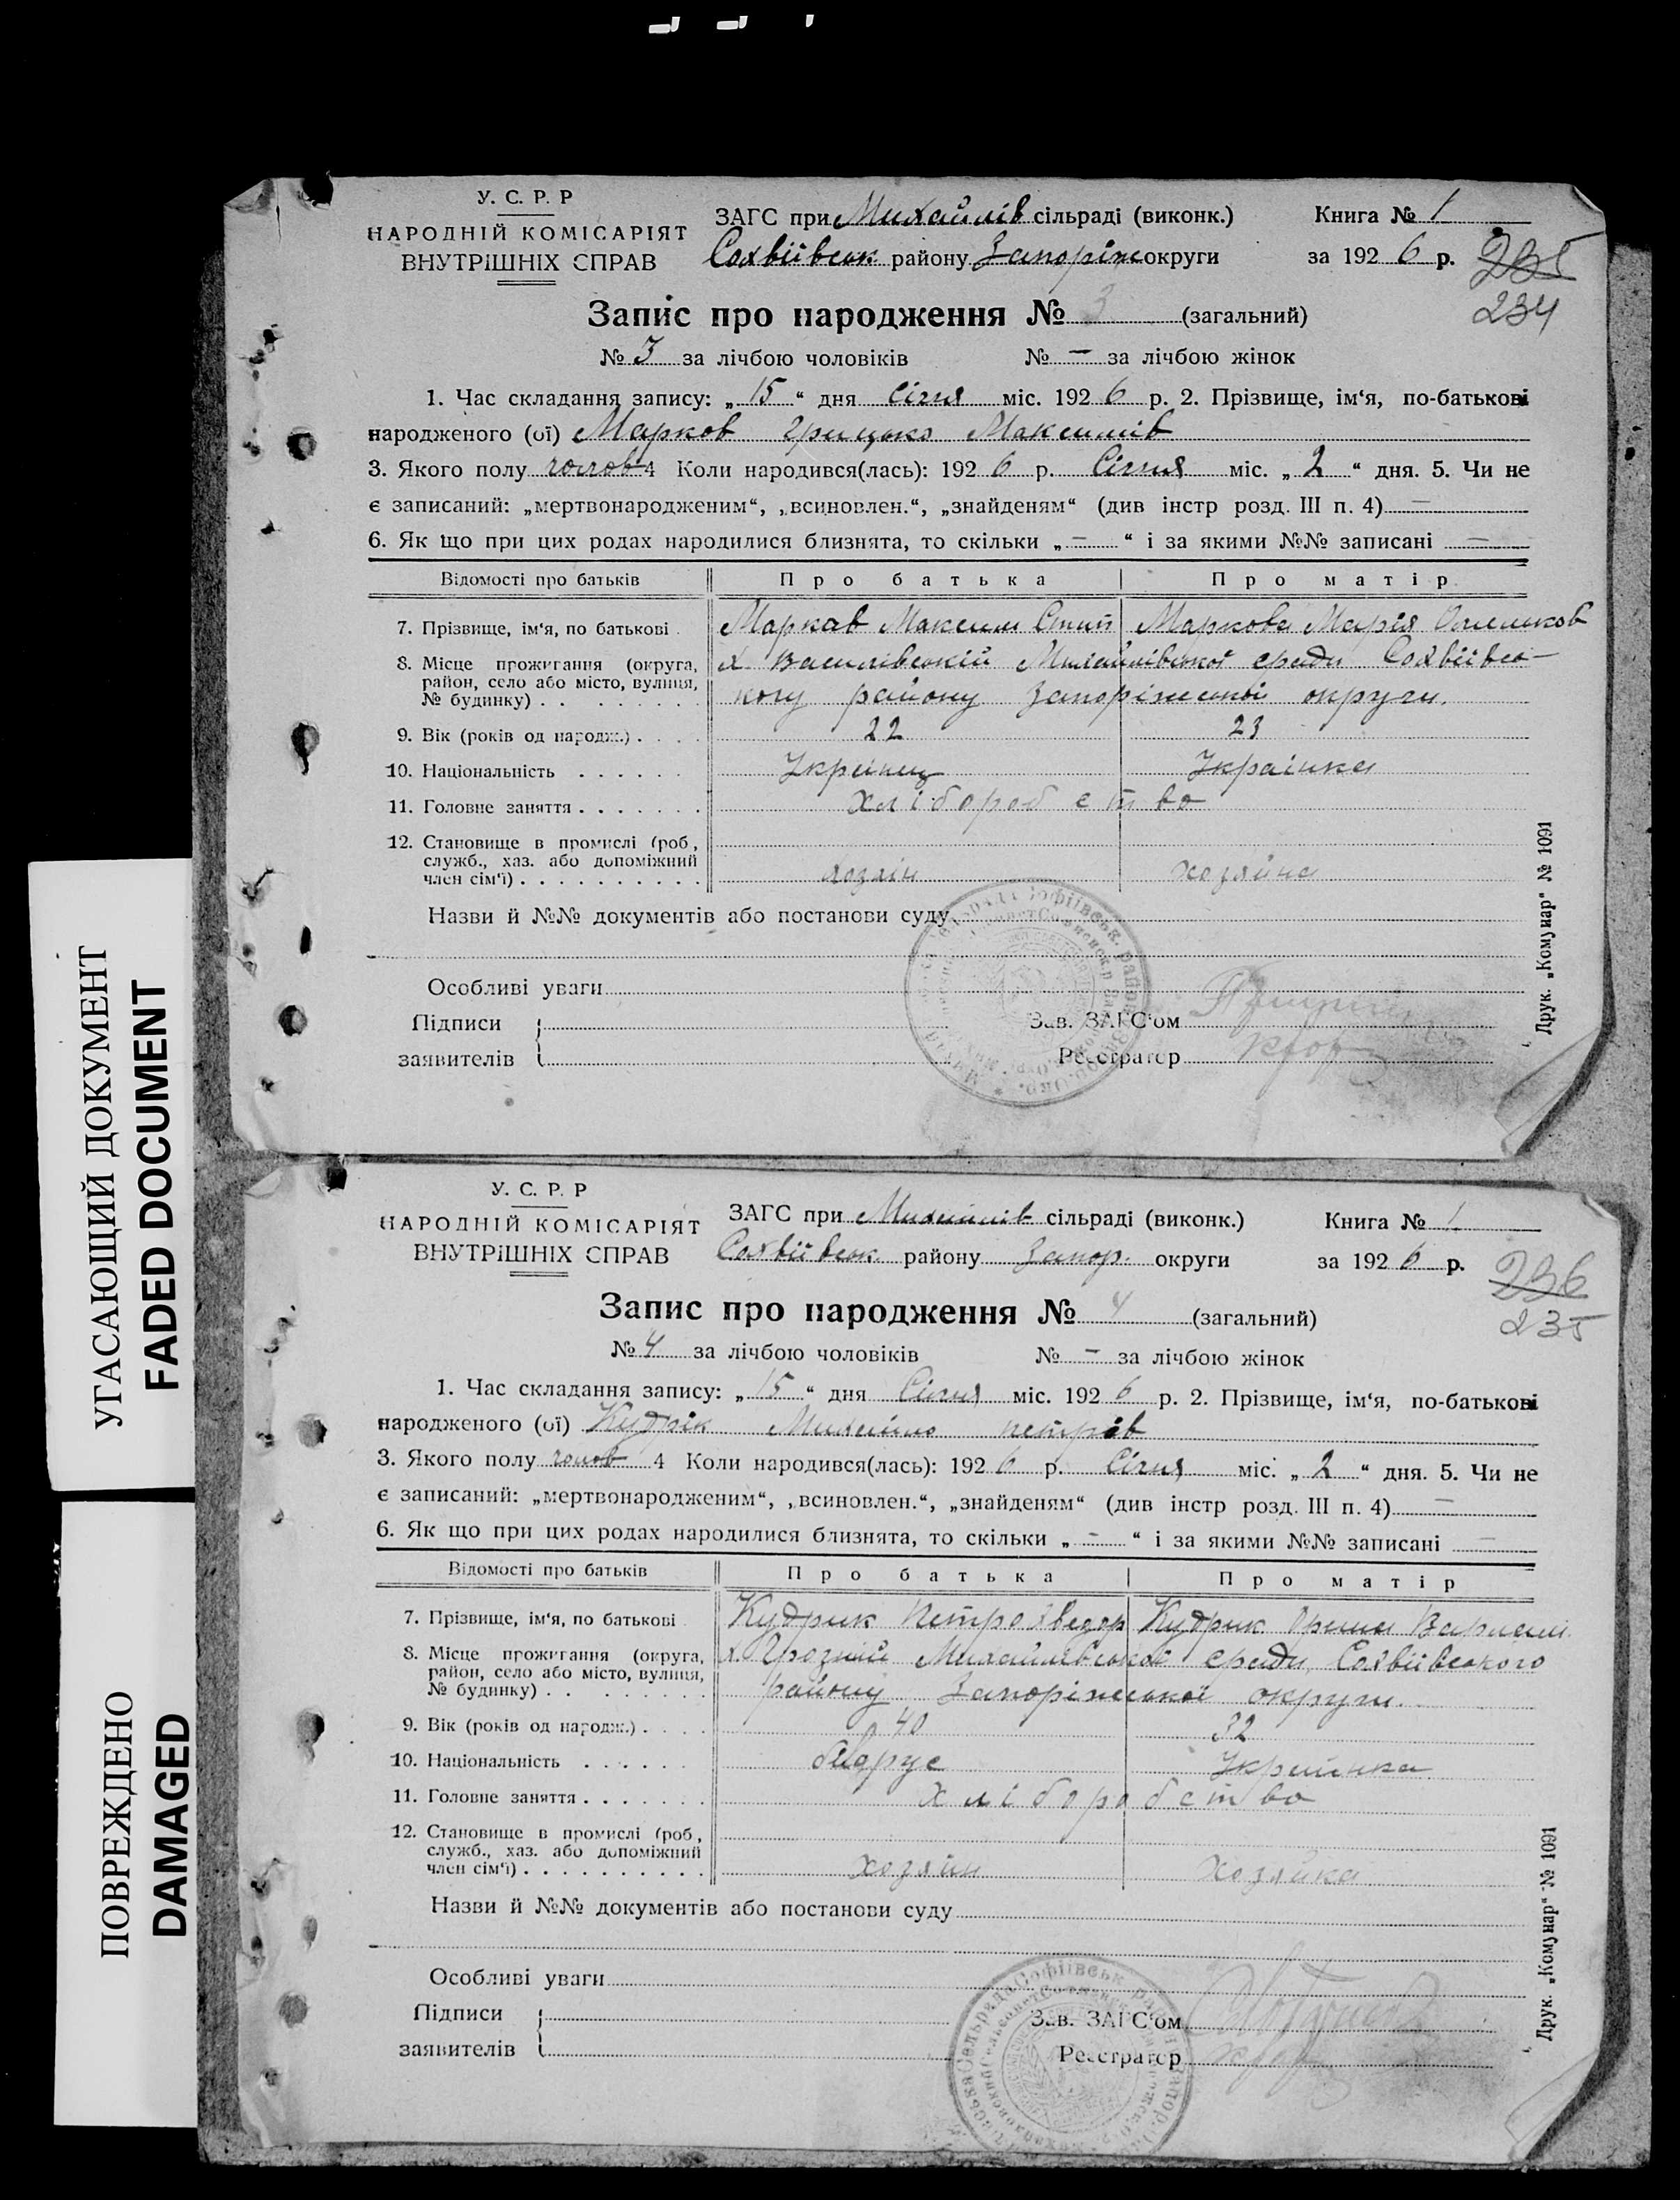 УГАСАЮЩИЙ ДОКУМЕНТ
FADED DOCUMENT
ПОВРЕЖДЕНО
DAMAGED
У. С. Р. Р
НАРОДНІЙ КОМІСАРІЯТ
ВНУТРІШНІХ СПРАВ
ЗАГС при Михайлів сільраді (виконк.) Книга № 1
Сохвіївськ району Запоріж округи за 1926 р.
235
234
Запис про народження № 3 (загальний)
№ 3 за лічбою чоловіків № — за лічбою жінок
1. Час складання запису: „15“ дня Січня міс. 1926 р. 2. Прізвище, ім‘я, по-батькові
народженого (ої) Марков Грицько Максимів
3. Якого полу чолов 4 Коли народився(лась): 1926 р. Січня міс. „2“ дня. 5. Чи не
є записаний: „мертвонародженим“, „всиновлен.“, „знайденям“ (див інстр розд. III п. 4) —
6. Як що при цих родах народилися близнята, то скільки „—“ і за якими №№ записані —
Відомості про батьків Про батька Про матір
7. Прізвище, ім‘я, по батькові Марков Максим Маркова Марія
8. Місце прожигання (округа, район, село або місто, вулиця, № будинку) х Василівській Михайлівської сради Сохвіївсь-
кому району Запоріжської округи.
9. Вік (років од народж.) 22 23
10. Національність Українц Українка
11. Головне заняття хліборобство
12. Становище в промислі (роб, служб., хаз. або допоміжний член сім‘ї) хозяін хозяйка
Назви й №№ документів або постанови суду
Особливі уваги
Підписи
заявителів
Зав. ЗАГС‘ом
Реєстратор
Друк. „Комунар“ № 1091
У. С. Р. Р
НАРОДНІЙ КОМІСАРІЯТ
ВНУТРІШНІХ СПРАВ
ЗАГС при Михайлів сільраді (виконк.) Книга № 1
Сохвіївськ району Запор. округи за 1926 р.
236
235
Запис про народження № 4 (загальний)
№ 4 за лічбою чоловіків № — за лічбою жінок
1. Час складання запису: „15“ дня Січня міс. 1926 р. 2. Прізвище, ім‘я, по-батькові
народженого (ої) Кудрік Михайло петрів
3. Якого полу чолов 4 Коли народився(лась): 1926 р. Січня міс. „2“ дня. 5. Чи не
є записаний: „мертвонародженим“, „всиновлен.“, „знайденям“ (див інстр розд. III п. 4) —
6. Як що при цих родах народилися близнята, то скільки „—“ і за якими №№ записані —
Відомості про батьків Про батька Про матір
7. Прізвище, ім‘я, по батькові Кудрик Петро Хведор Кудрик Орина Варлам
8. Місце прожигання (округа, район, село або місто, вулиця, № будинку) х. Грозній Михайлівської сради, Сохвіївського
району Запоріжської округи.
9. Вік (років од народж.) 40 32
10. Національність Українка
11. Головне заняття хліборобство
12. Становище в промислі (роб, служб., хаз. або допоміжний член сім‘ї) хозяін хозяйка
Назви й №№ документів або постанови суду
Особливі уваги
Підписи
заявителів
Зав. ЗАГС‘ом
Реєстратор
Друк. „Комунар“ № 1091